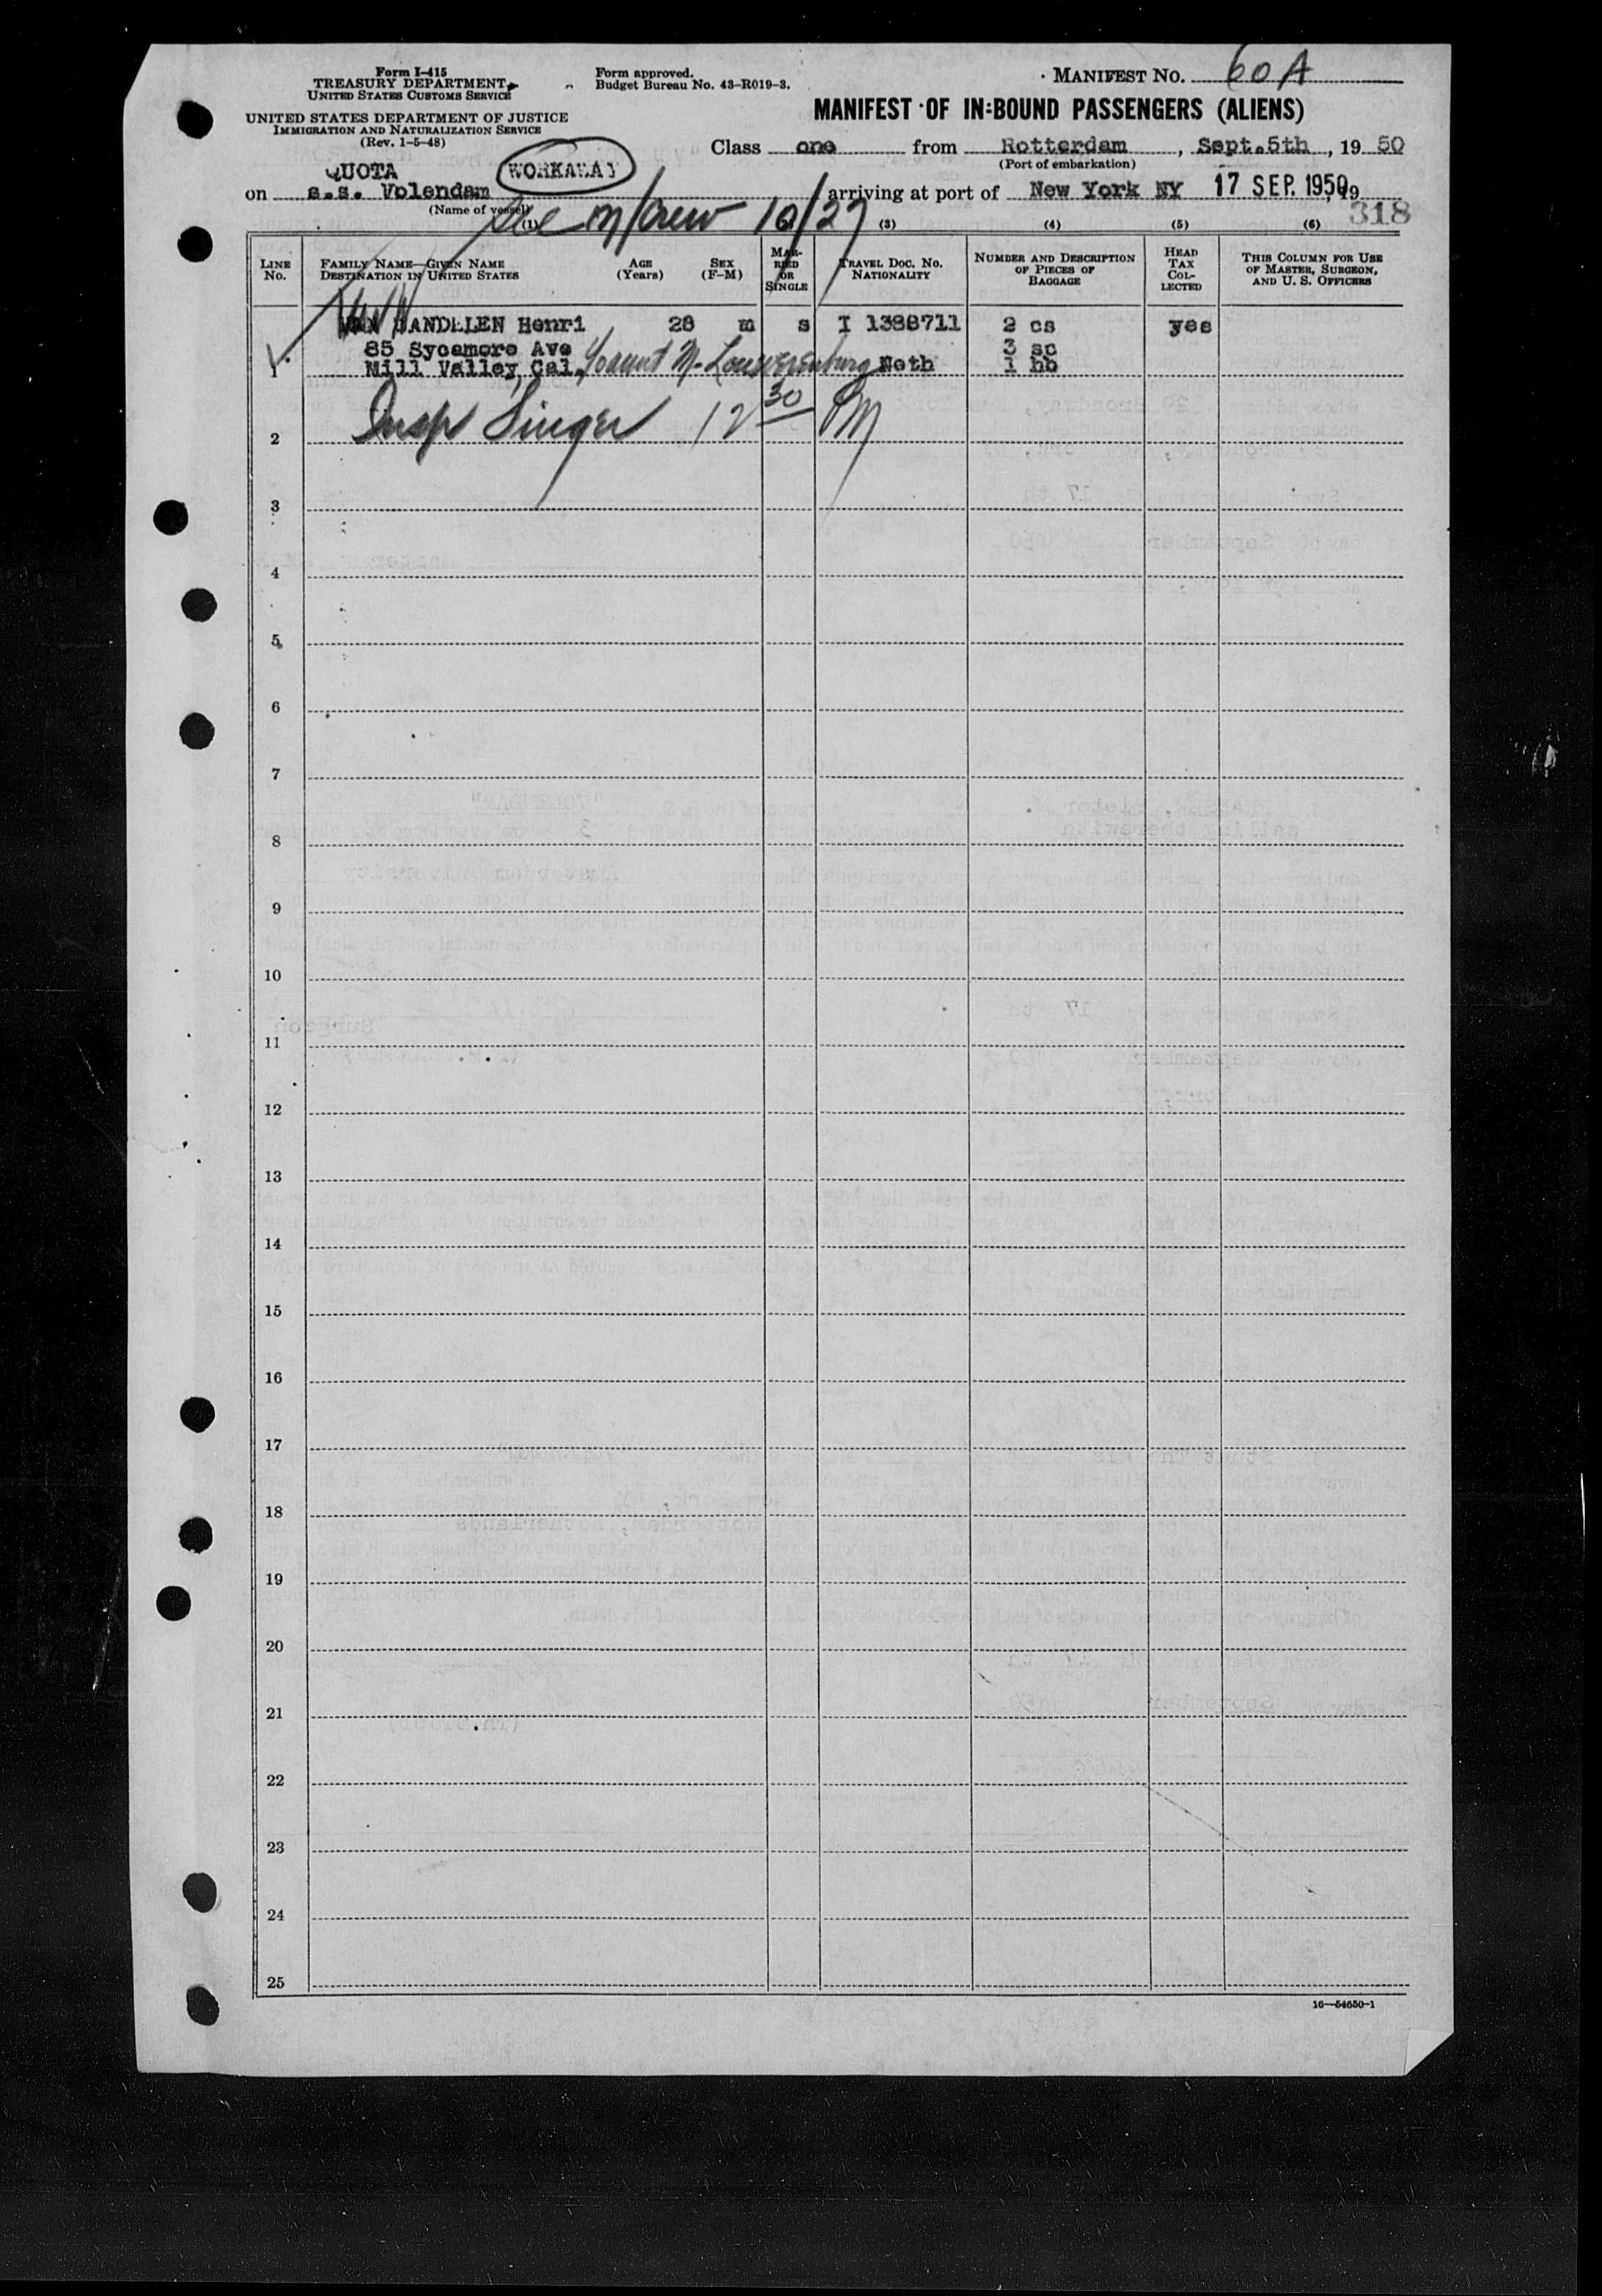 Form I-415
TREASURY DEPARTMENT
UNITED STATES CUSTOMS SERVICE
UNITED STATES DEPARTMENT OF JUSTICE
IMMIGRATION AND NATURALIZATION SERVICE
(Rev. 1-5-48)
Form approved.
Budget Bureau No. 43-R019-3.
MANIFEST NO. 60A
MANIFEST OF IN-BOUND PASSENGERS (ALIENS)
Class one from Rotterdam, Sept.5th, 1950
(Port of embarkation)
QUOTA WORKAWAY
on s.s. Volendam arriving at port of New York NY 17 SEP. 1950, 19
(Name of vessel)
See M/Crew 10/27
318
(1) (3) (4) (5) (6)
LINE No.
FAMILY NAME—GIVEN NAME
DESTINATION IN UNITED STATES
AGE
(Years)
SEX
(F-M)
MARRIED OR SINGLE
TRAVEL DOC. NO.
NATIONALITY
NUMBER AND DESCRIPTION
OF PIECES OF
BAGGAGE
HEAD
TAX
COL-
LECTED
THIS COLUMN FOR USE
OF MASTER, SURGEON,
AND U. S. OFFICERS
VAN Henri 28 m s I 1388711 2 cs yes
85 Sycamore Ave 3 sc
1 Mill Valley Cal. Neth 1 hb
2 Insp Singer 12 30 PM
3
4
5
6
7
8
9
10
11
12
13
14
15
16
17
18
19
20
21
22
23
24
25
16—54650-1